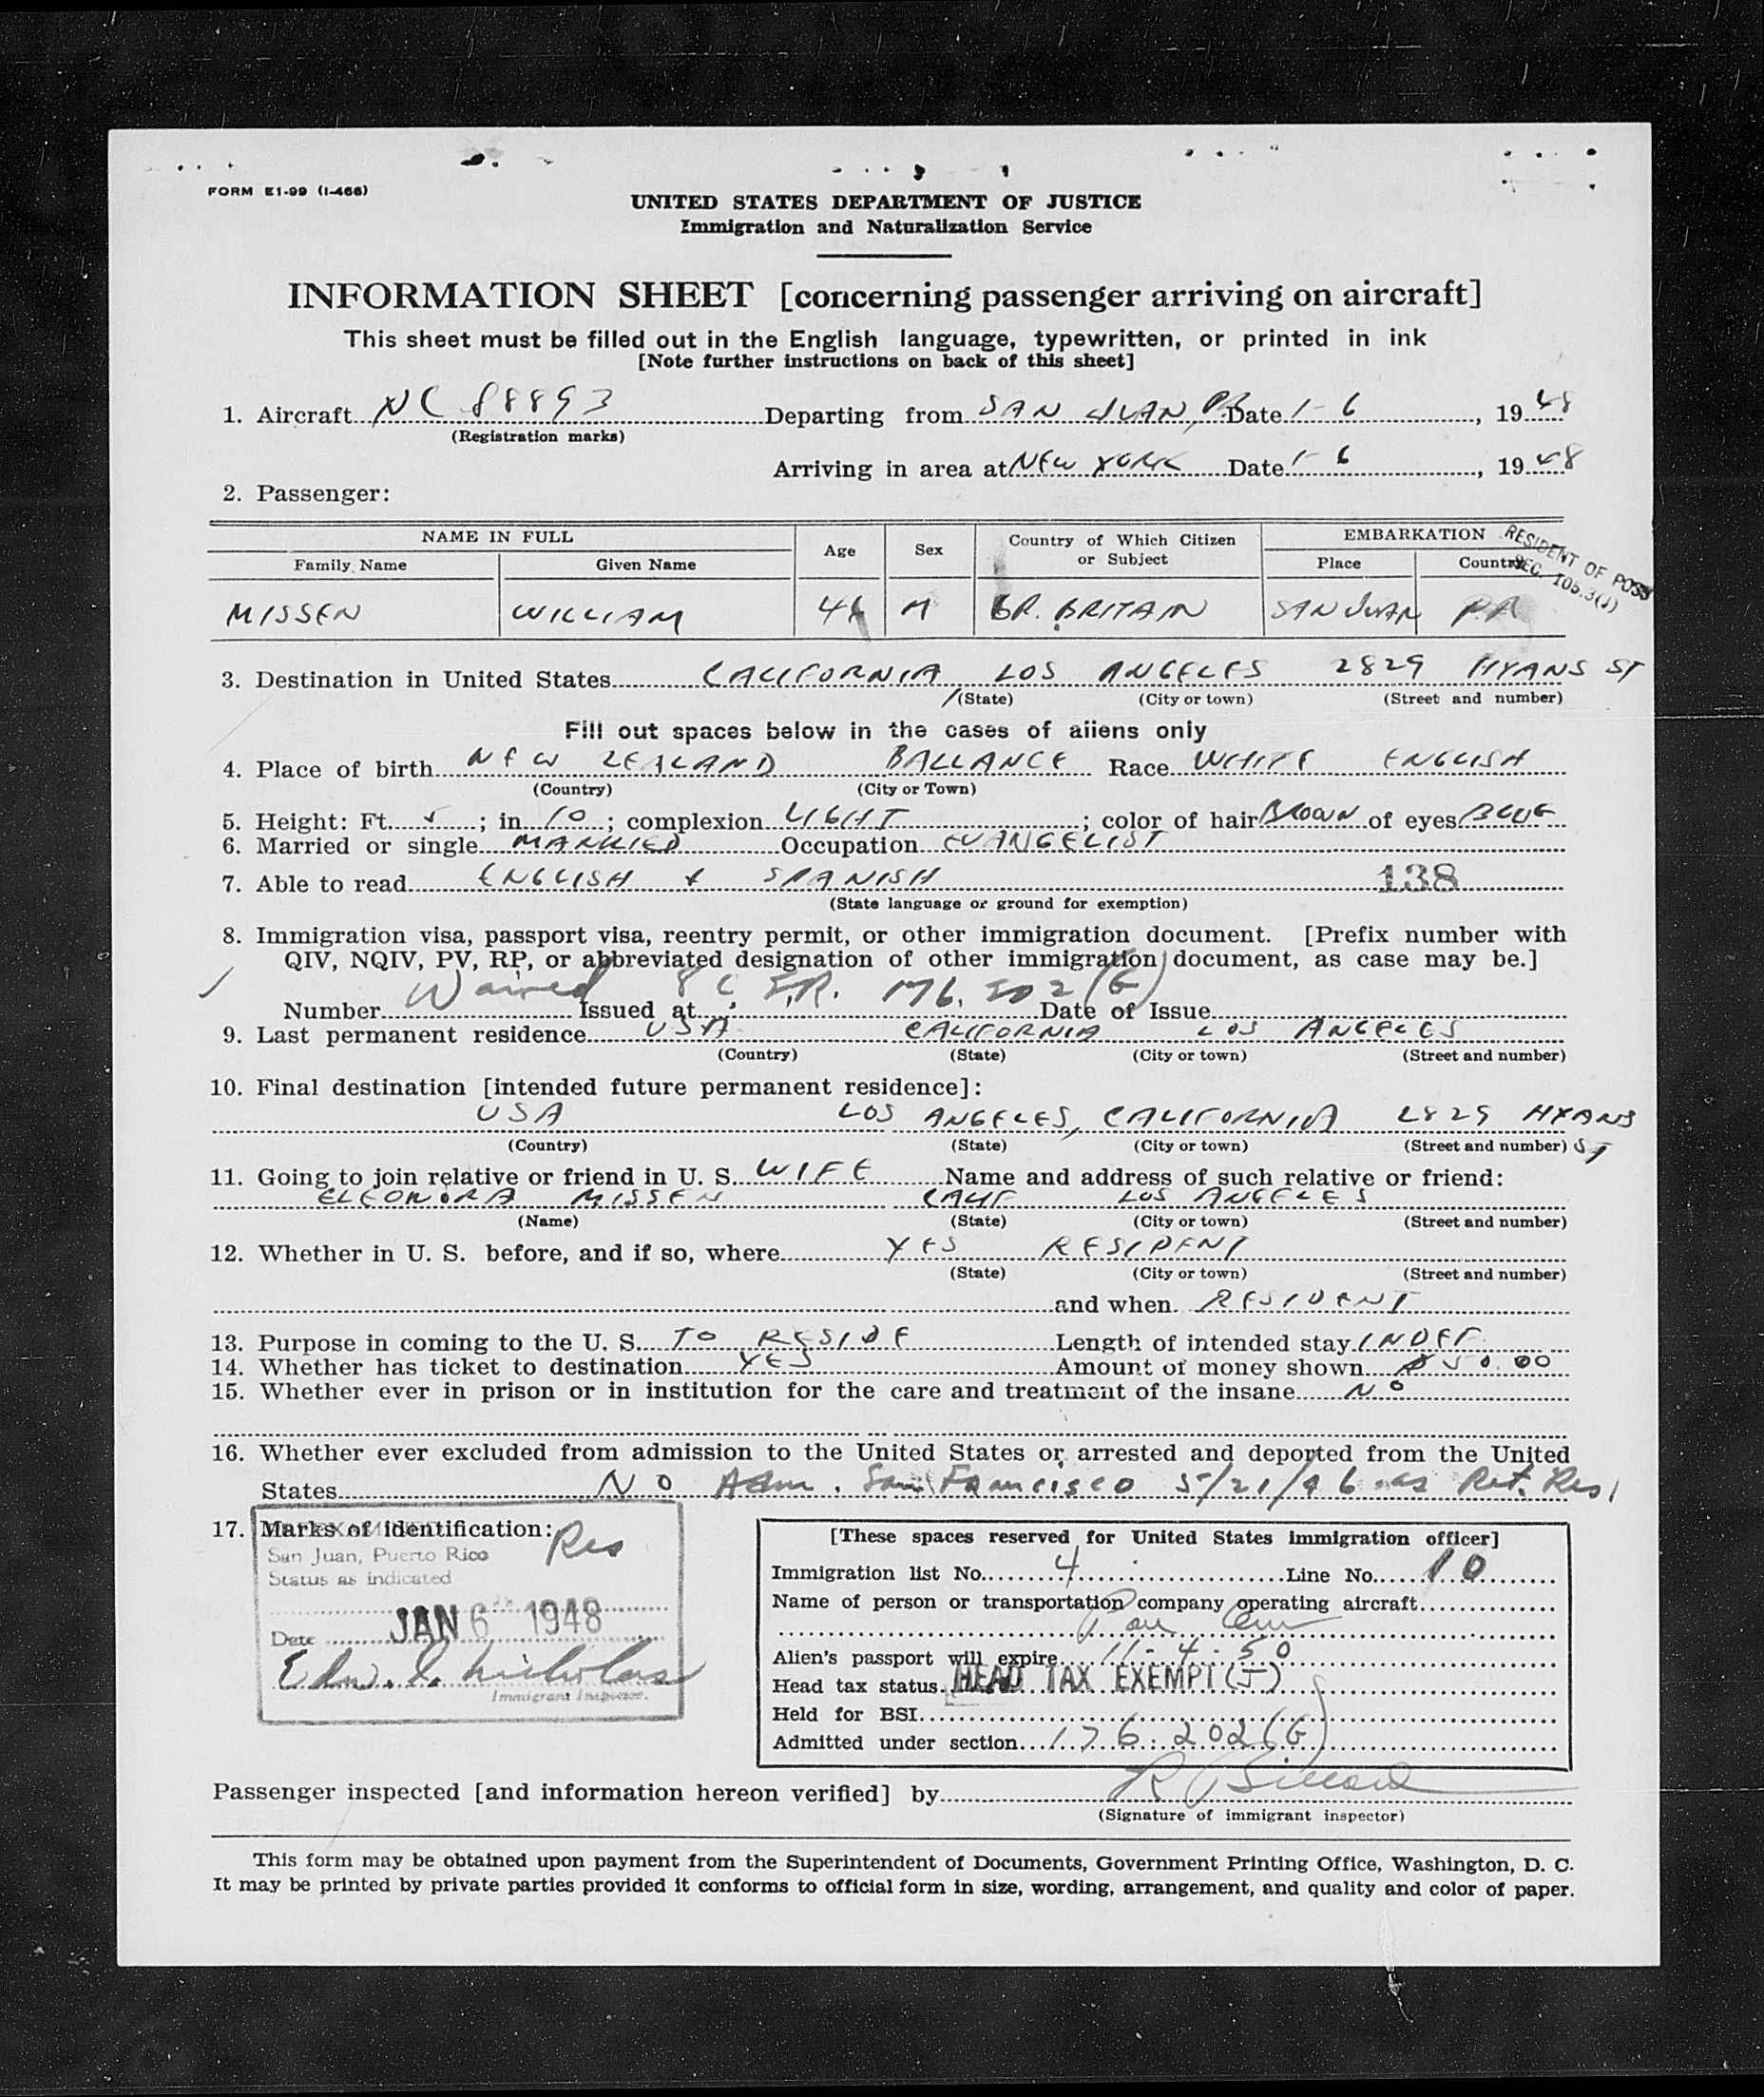 FORM E1-99 (I-466)
UNITED STATES DEPARTMENT OF JUSTICE
Immigration and Naturalization Service
INFORMATION SHEET [concerning passenger arriving on aircraft]
This sheet must be filled out in the English language, typewritten, or printed in ink
[Note further instructions on back of this sheet]
1. Aircraft NC 88893 Departing from SAN JUAN, PR Date 1-6, 1948
(Registration marks)
Arriving in area at NEW YORK Date 1-6, 1948
2. Passenger:
NAME IN FULL Age Sex Country of Which Citizen or Subject EMBARKATION
Family Name Given Name Place Country
RESIDENT OF POSS
SEC. 105.3(J)
MISSEN WILLIAM M GR. BRITAIN SAN JUAN P.R.
3. Destination in United States CALIFORNIA LOS ANGELES 2829 HYANS ST
(State) (City or town) (Street and number)
Fill out spaces below in the cases of aliens only
4. Place of birth NEW ZEALAND BALLANCE Race WHITE ENGLISH
(Country) (City or Town)
5. Height: Ft. 5; in 10; complexion LIGHT; color of hair BROWN of eyes BLUE
6. Married or single MARRIED Occupation EVANGELIST
7. Able to read ENGLISH & SPANISH 138
(State language or ground for exemption)
8. Immigration visa, passport visa, reentry permit, or other immigration document. [Prefix number with
QIV, NQIV, PV, RP, or abbreviated designation of other immigration document, as case may be.]
Number Waived Issued at 8 C.F.R. 176.202(G) Date of Issue
9. Last permanent residence USA CALIFORNIA LOS ANGELES
(Country) (State) (City or town) (Street and number)
10. Final destination [intended future permanent residence]:
USA LOS ANGELES, CALIFORNIA 2829 HYANS ST
(Country) (State) (City or town) (Street and number)
11. Going to join relative or friend in U. S. WIFE Name and address of such relative or friend:
ELEONORA MISSEN CALIF LOS ANGELES
(Name) (State) (City or town) (Street and number)
12. Whether in U. S. before, and if so, where YES RESIDENT
(State) (City or town) (Street and number)
and when RESIDENT
13. Purpose in coming to the U. S. TO RESIDE Length of intended stay INDEF.
14. Whether has ticket to destination YES Amount of money shown $50.00
15. Whether ever in prison or in institution for the care and treatment of the insane NO
16. Whether ever excluded from admission to the United States or arrested and deported from the United
States NO Adm. San Francisco 5/21/46 as Ret. Res.
17. Marks of identification: Res
San Juan, Puerto Rico
Status as indicated
Date JAN 6 1948
Edw. Nicholas
Immigrant Inspector.
[These spaces reserved for United States immigration officer]
Immigration list No. 4 Line No. 10
Name of person or transportation company operating aircraft
Pan Am
Alien's passport will expire 11-4-50
Head tax status HEAD TAX EXEMPT (J)
Held for BSI
Admitted under section 176.202(G)
Passenger inspected [and information hereon verified] by
(Signature of immigrant inspector)
This form may be obtained upon payment from the Superintendent of Documents, Government Printing Office, Washington, D. C.
It may be printed by private parties provided it conforms to official form in size, wording, arrangement, and quality and color of paper.